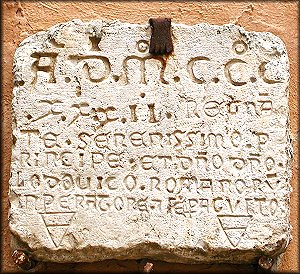 A̅. D̅. M̊. C. C̊. C
X. X. X. II. REGNA̅
TE SERENISSIMO. P
RINCIPE. ET. DN̅O DN̅O.
LODOVICO. ROMANORV̅
INPERATORE